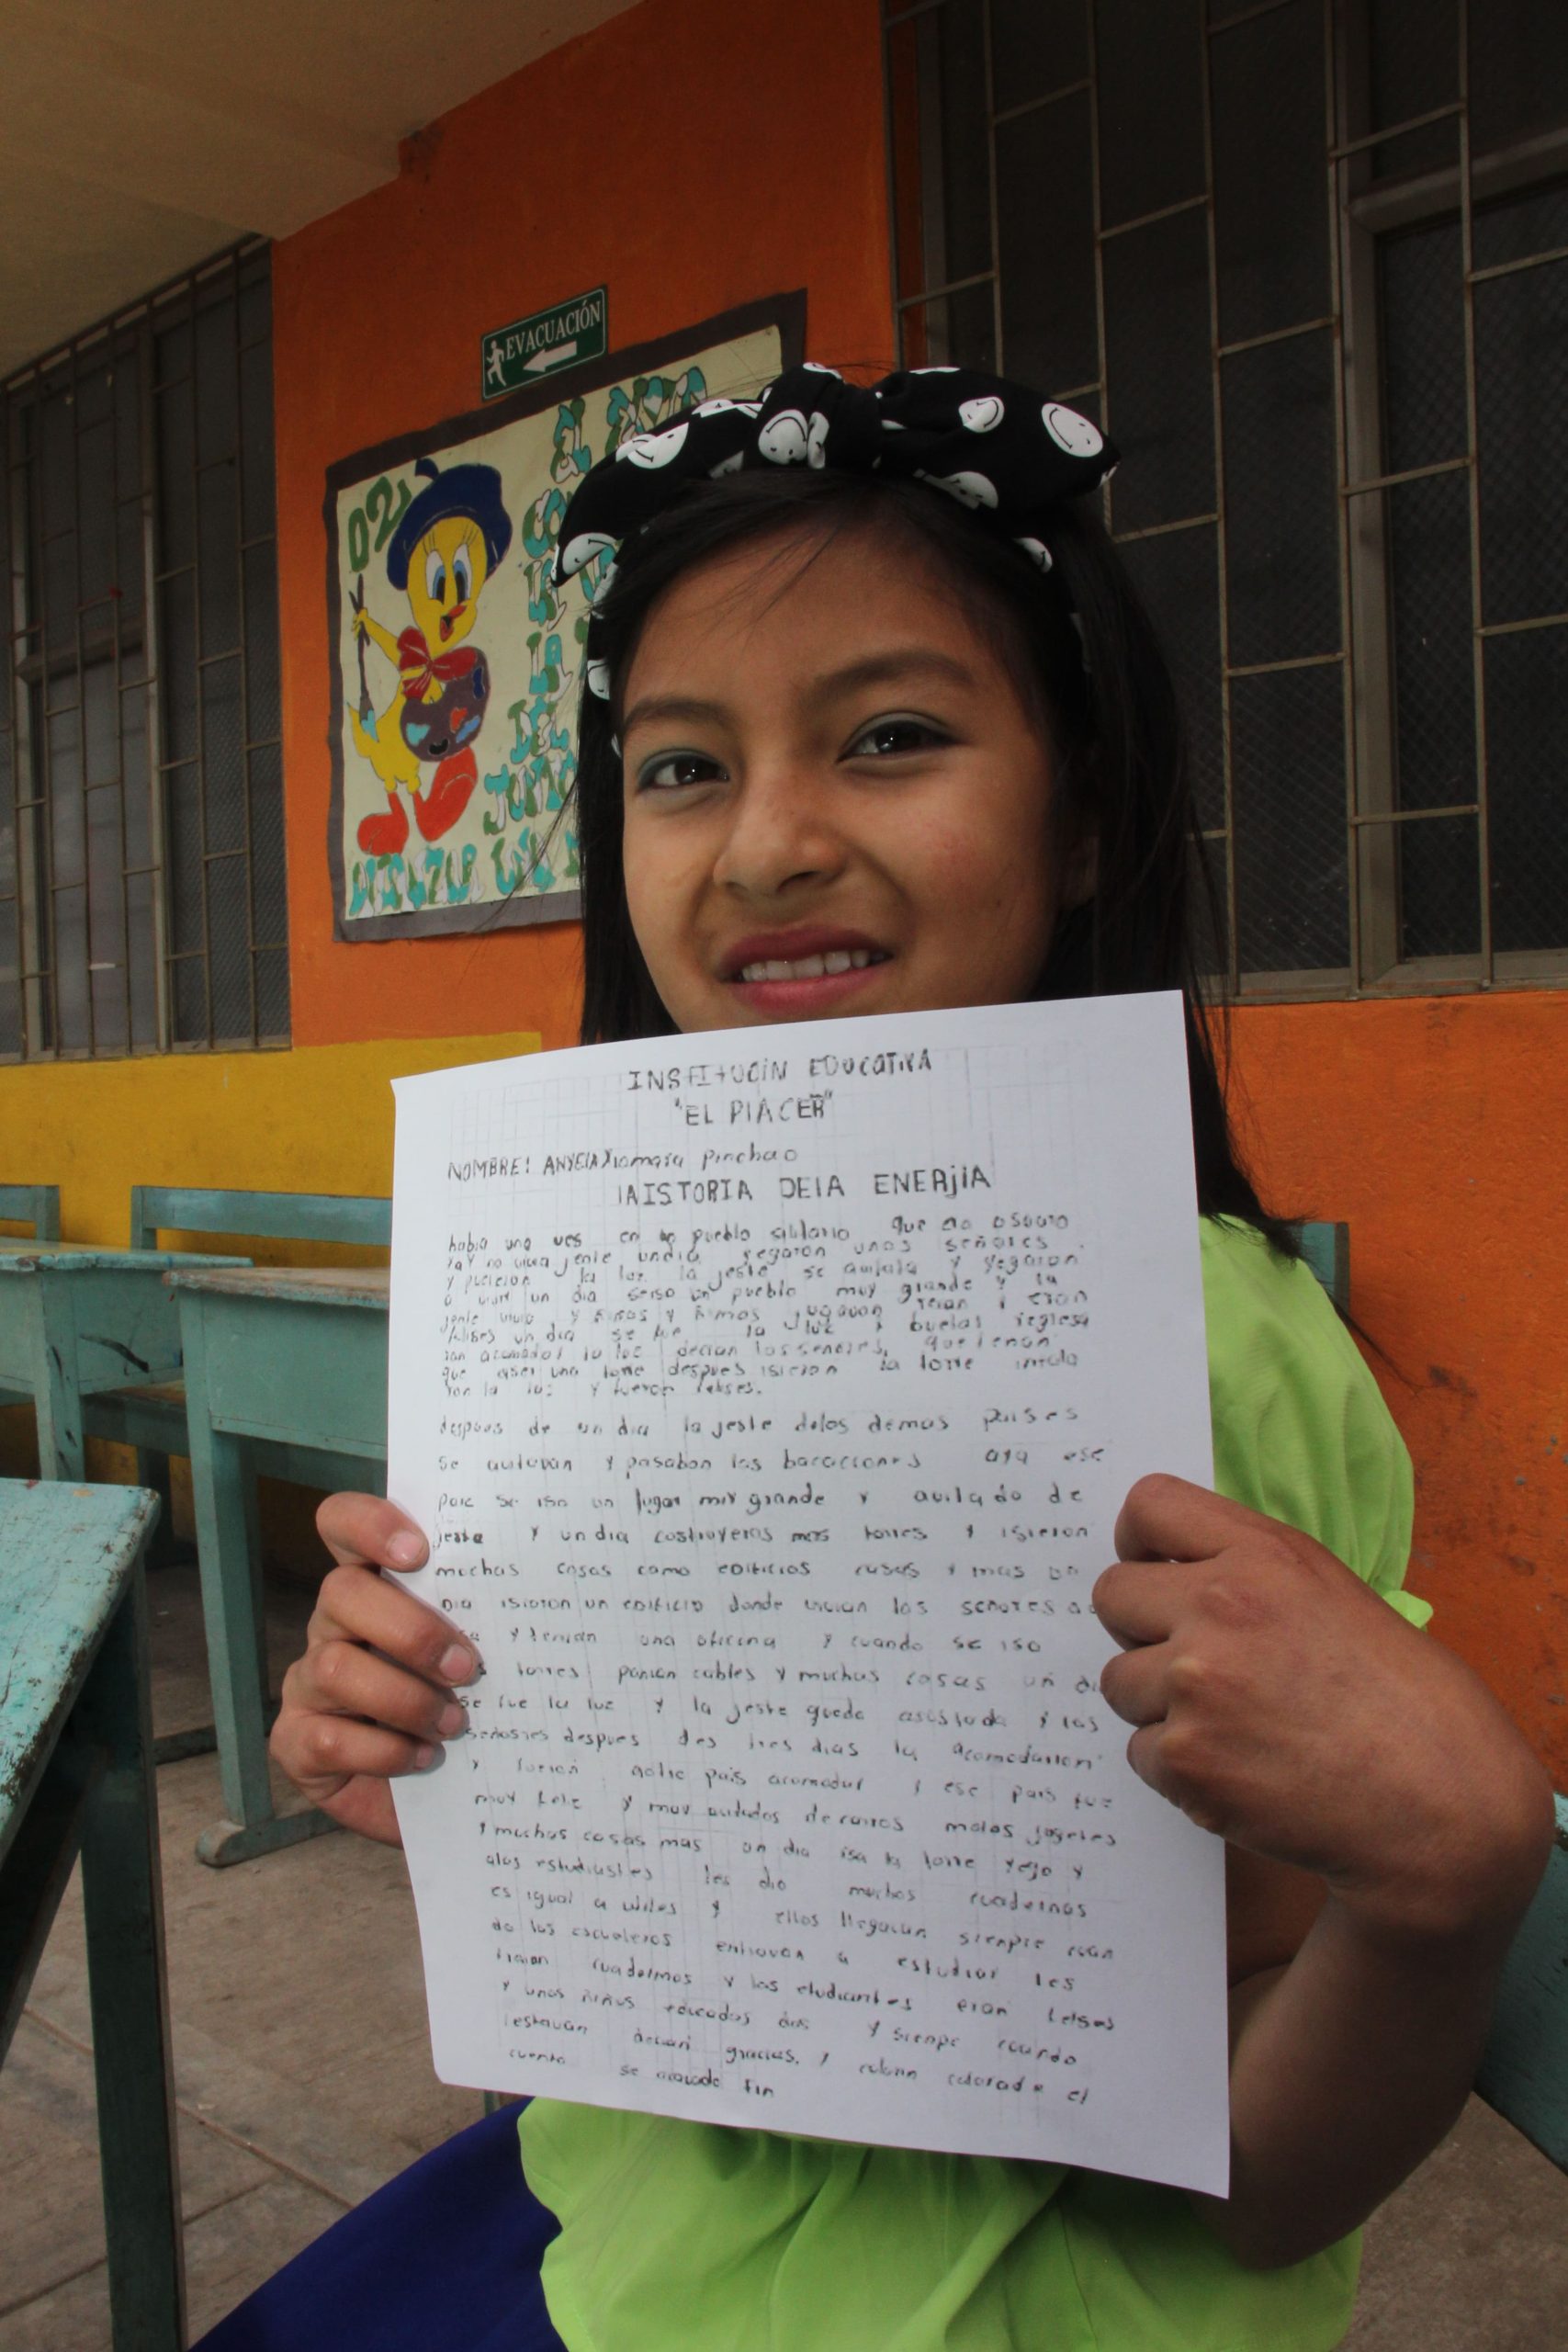 EVACUACIÓN
D2
EL
LA
LA
DEL
INSTITUCIÓN EDUCATIVA
"EL PlACER"
NOMBRE: ANYElA Xiomara Pinchao
lA ISTORIA DElA ENERJÍA
habia una ves en un pueblo que
Ya Y no vivia jente un dia yegaron unos señores
y pucieron la luz. la jeste se y yegaron
a vivir un dia seiso un pueblo muy grande y la
jente vivia y niños y jugavan reian i eran
felises un dia se fue la luz y
acomodar la luz decian los señores, que tenan
que aser una torre despues isieron la torre
con la luz y fueron felises.
despues de un dia la jeste delos demas paises
se y pasaban las bacaciones aya ese
pais se iso un lugar muy grande y de
jeste y un dia costruyeros mas torres y isieron
muchas cosas como edificios casas y mas un
dia isieron un edificio donde vivian los señores
y tenian una oficina y cuando se iso
torres ponian cables y muchas cosas un
se fue la luz y la jeste quedo asustada y los
señores despues des tres dias la acomodaron
y fueron pais acomodar y ese pais fue
muy y muy de carros motos jugetes
y muchas cosas mas un dia isa la torre yego y
alos estudiastes les dio muchos cuadernos
es igual a utiles y ellos llegavan siempre cuan
do los escueleros entravan a estudiar les
traian cuadernos y los etudiantes eran felises
y unos niños educados y sienpe cuando
decian gracias, y colorin colorado el
cuento se acavado fin